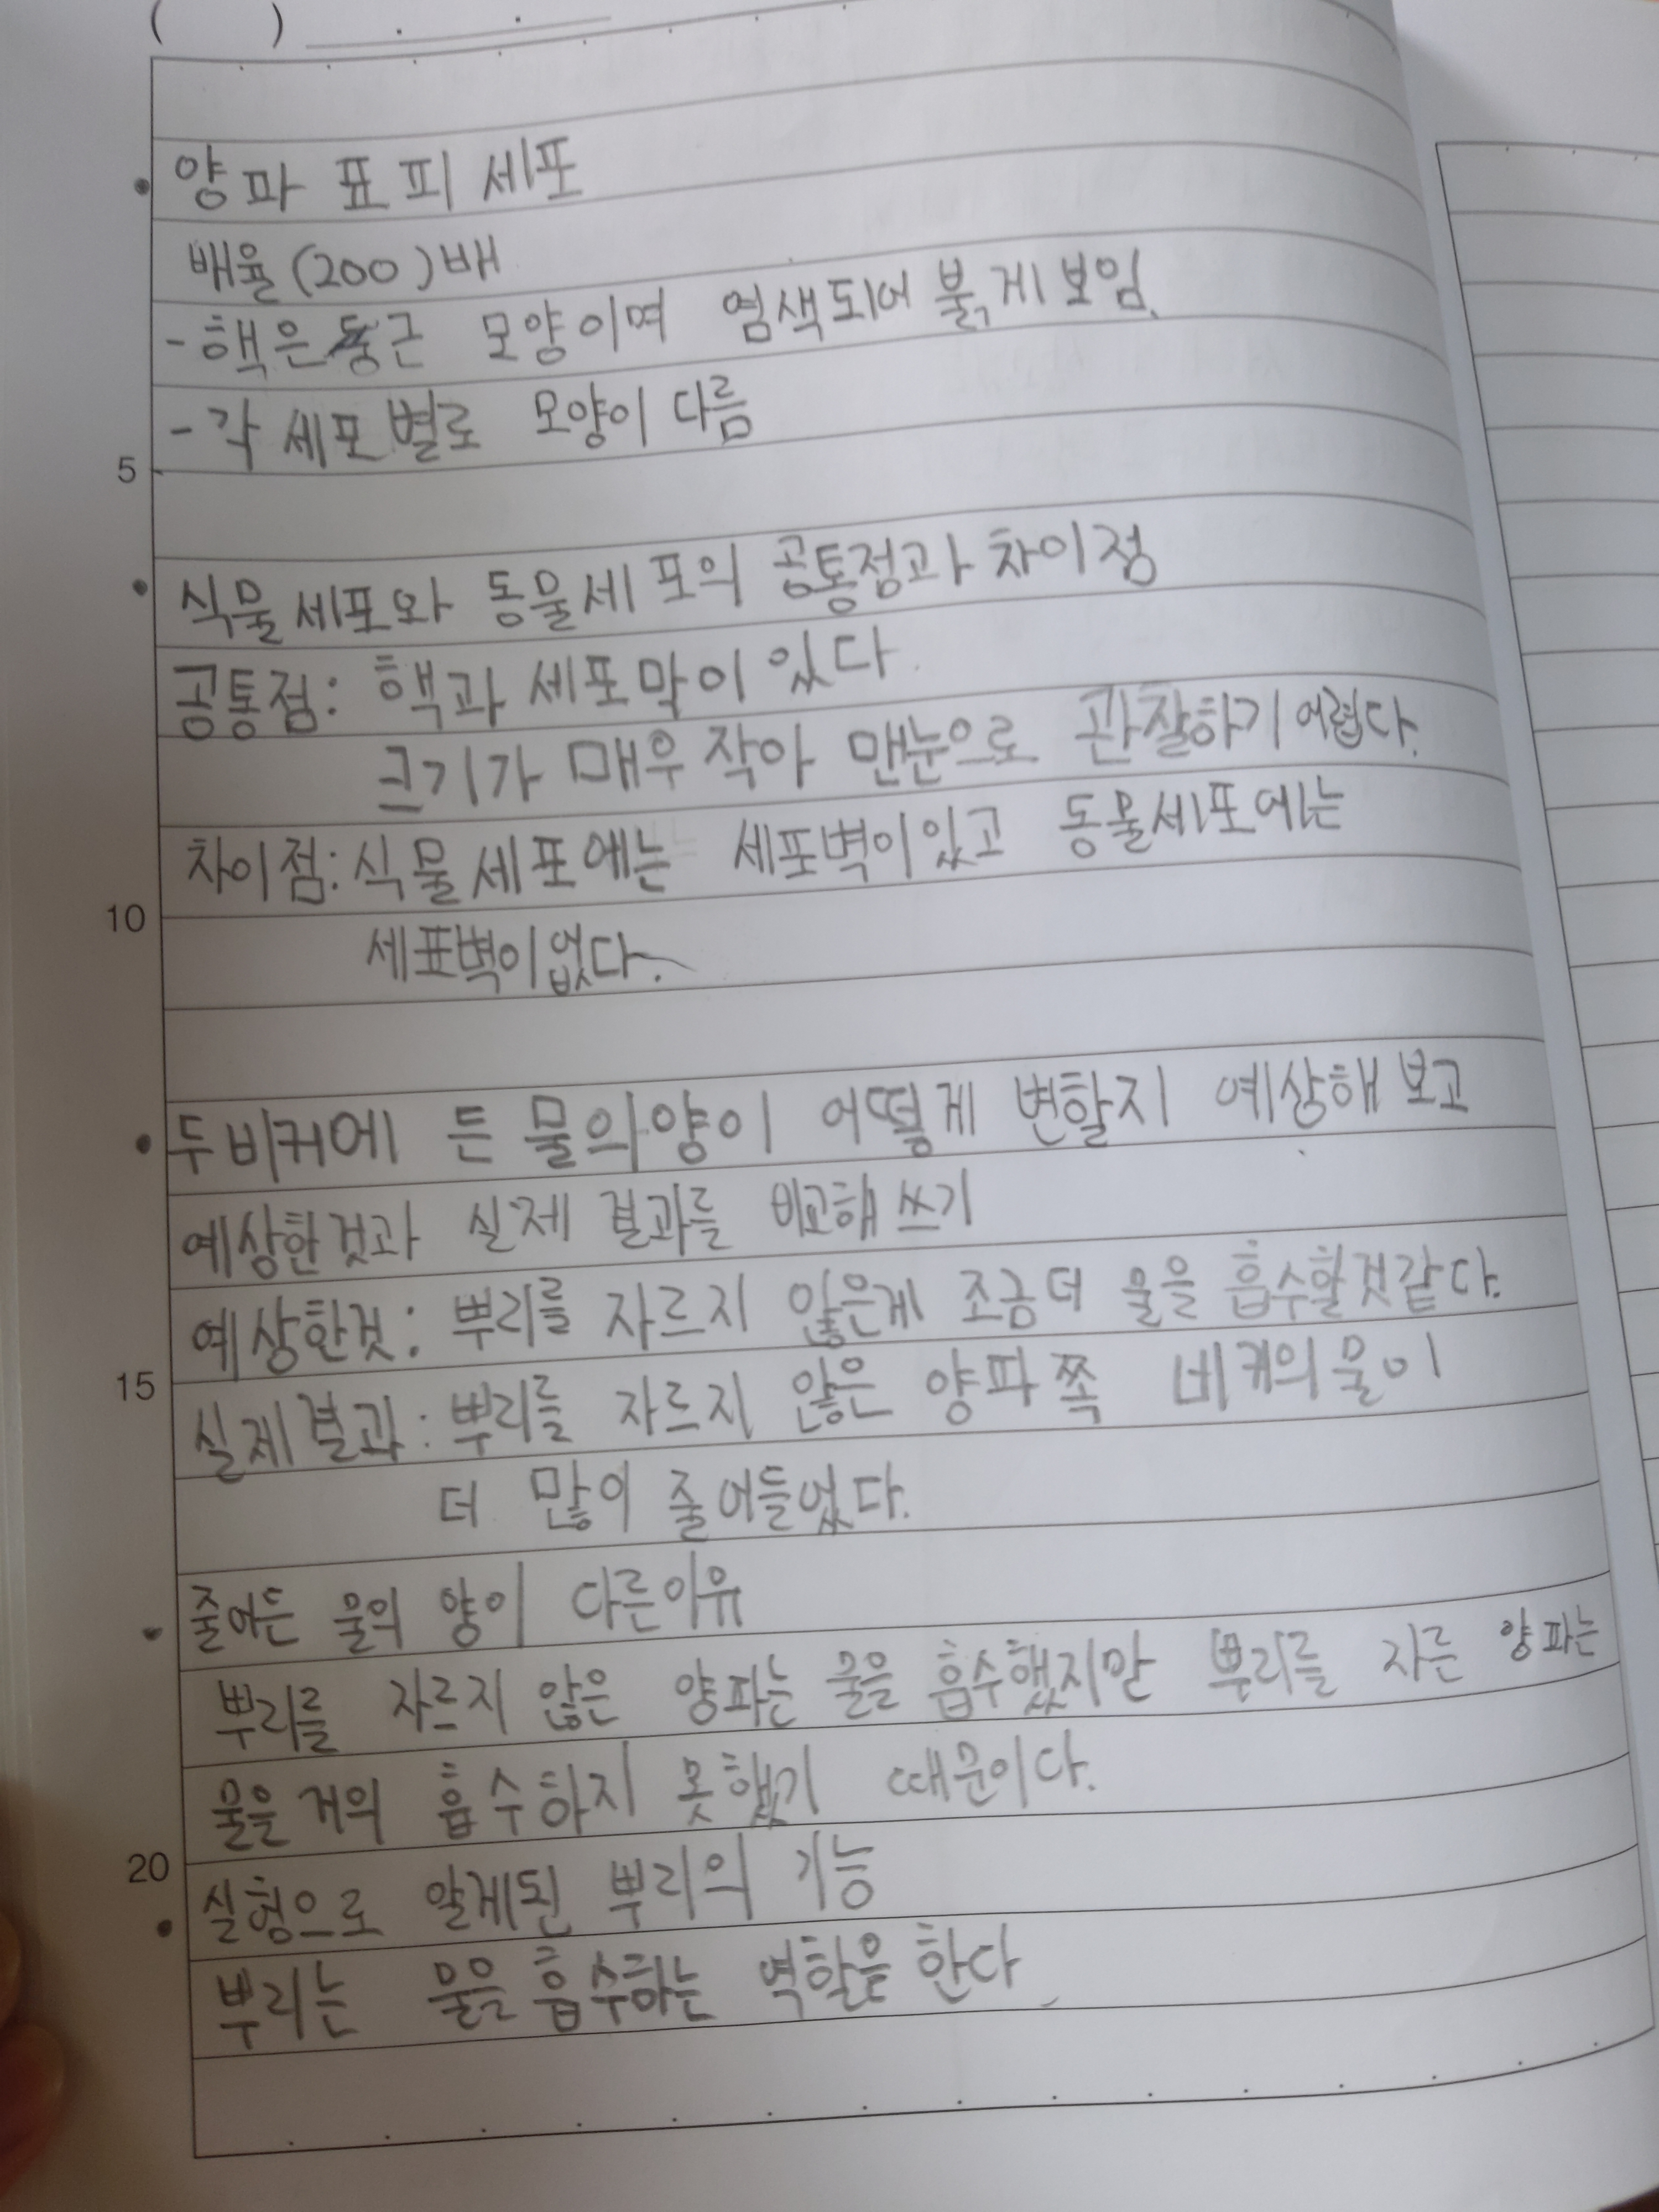 ( )
양파 표피 세포
배율(200)배
-핵은둥근 모양이며 염색되어 붉게보임.
-각 세포별로 모양이 다름
5
식물세포와 동물세포의 공통점과 차이점
공통점: 핵과 세포막이 있다.
크기가 매우 작아 맨눈으로 관찰하기 어렵다.
차이점: 식물세포에는 세포벽이있고 동물세포에는
10
세표벽이없다.
두비커에 든 물의양이 어떻게 변할지 예상해보고
예상한것과 실제 결과를 비교해 쓰기
예상한것: 뿌리를 자르지 않은게 조금더 물을 흡수할것같다.
15
실제결과: 뿌리를 자르지 않은 양파쪽 비커의물이
더 많이 줄어들었다.
줄어든 물의 양이 다른이유
뿌리를 자르지 않은 양파는 물을 흡수했지만 뿌리를 자른 양파는
물을 거의 흡수하지 못했기 때문이다.
20
실험으로 알게된 뿌리의 기능
뿌리는 물을 흡수하는 역할을 한다